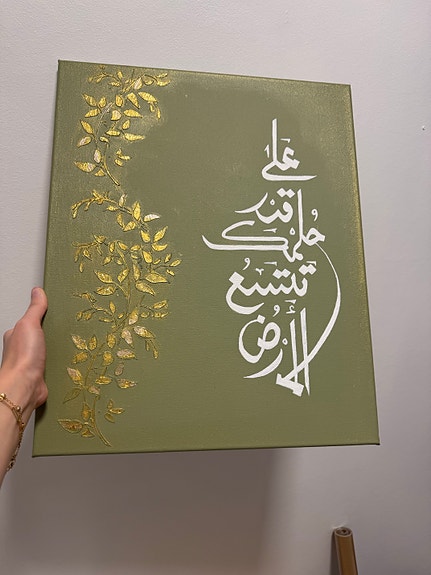 على
قدر
حلمك
تتسع
الأرض